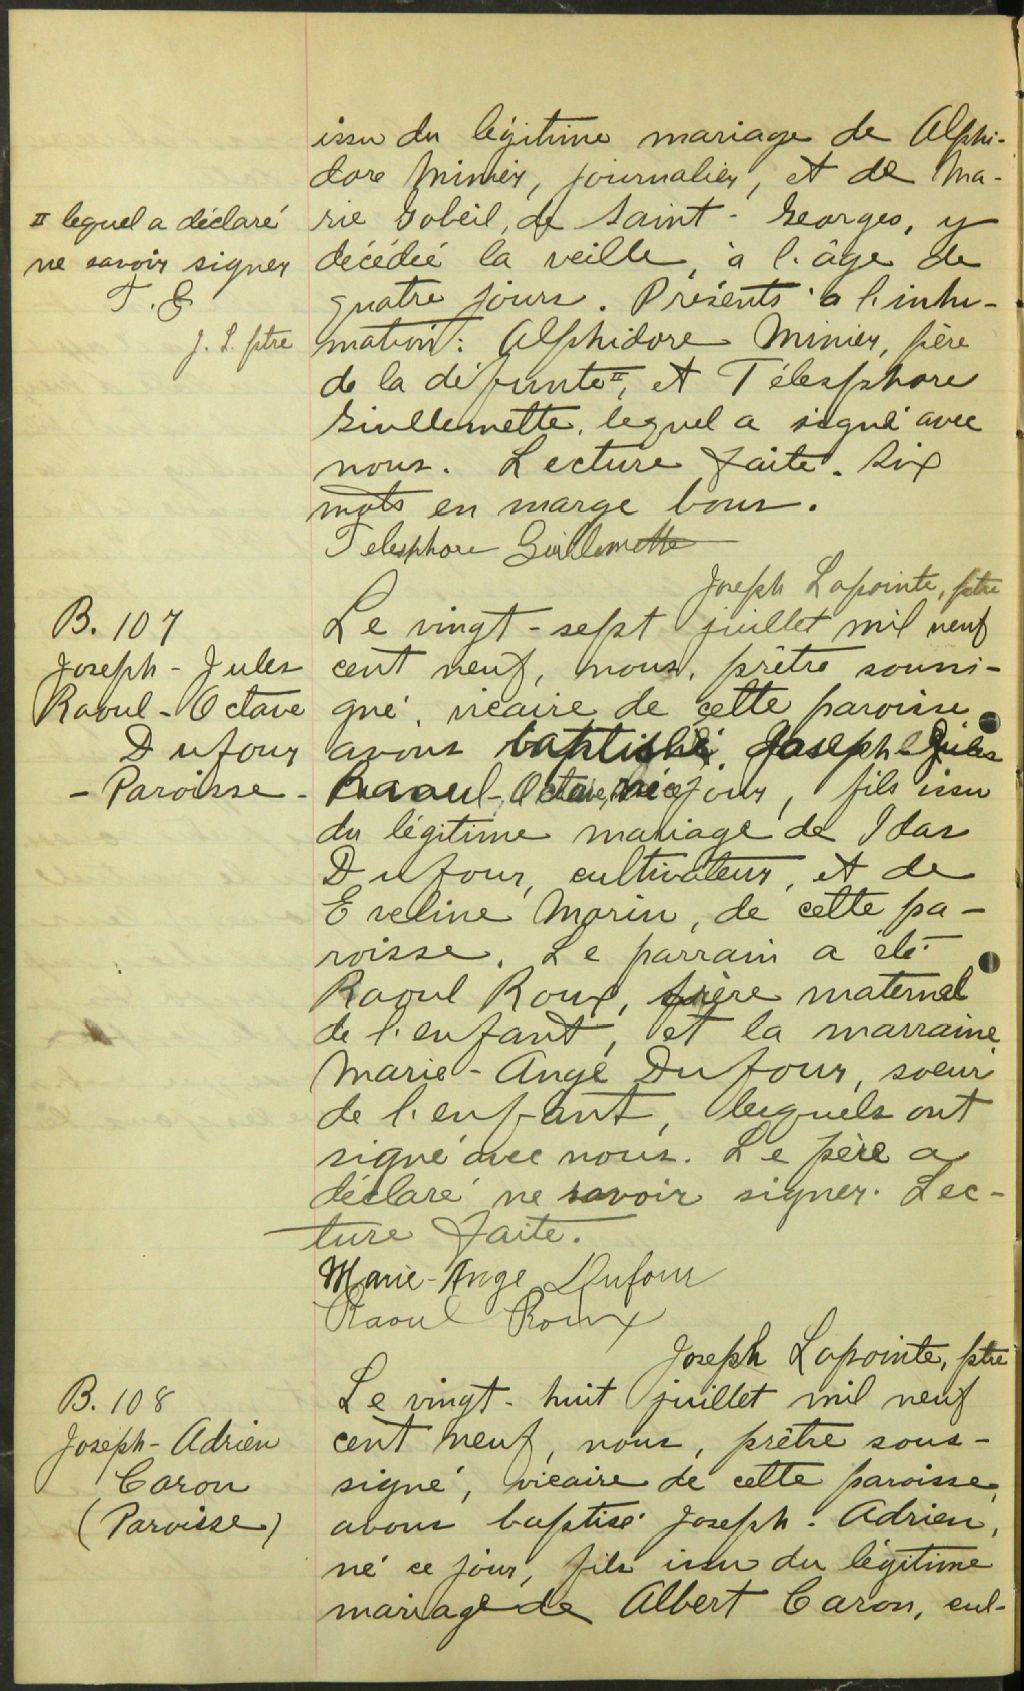 issu du légitime mariage de Alphi-
dore Minier, journalier, et de Ma-
rie Gobeil, de Saint-Georges, y
décédée la veille, à l'âge de
quatre jours. Présents à l'inhu-
mation: Alphidore Minier, père
de la défunte II, et Télesphore
Guillemette, lequel a signé avec
nous. Lecture faite. Six
mots en marge bons.
II lequel a déclaré
ne savoir signer
T. G
J. L. ptre
Telesphore Guillemette
Joseph Lapointe, ptre
B. 107
Joseph-Jules
Raoul-Octave
Dufour
- Paroisse -
Le vingt-sept juillet mil neuf
cent neuf, nous, prêtre soussi-
gné, vicaire de cette paroisse
avons baptisé Joseph Jules
Raoul-Octave, né ce jour, fils issu
du légitime mariage de Idas
Dufour, cultivateur, et de
Eveline Morin, de cette pa-
roisse. Le parrain a été
Raoul Roux, frère maternel
de l'enfant, et la marraine
Marie-Ange Dufour, soeur
de l'enfant, lesquels ont
signé avec nous. Le père a
déclaré ne savoir signer. Lec-
ture faite.
Marie-Ange Dufour
Raoul Roux
Joseph Lapointe, ptre
B. 108
Joseph-Adrien
Caron
(Paroisse)
Le vingt-huit juillet mil neuf
cent neuf, nous, prêtre sous-
signé, vicaire de cette paroisse,
avons baptisé Joseph-Adrien,
né ce jour, fils issu du légitime
mariage de Albert Caron, cul-